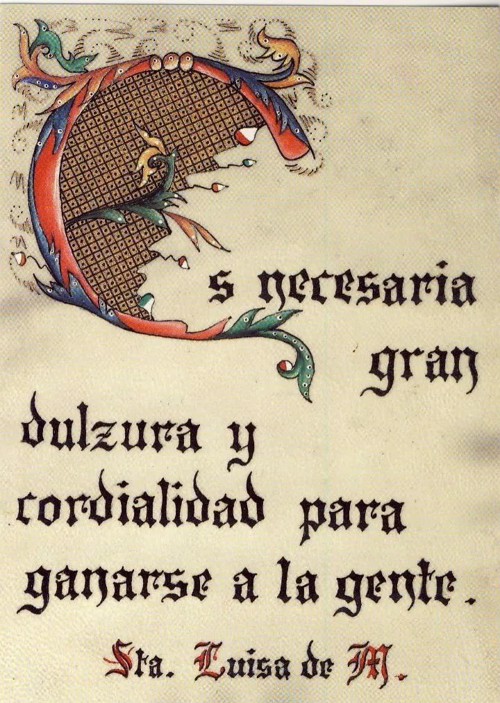 Es necesaria
gran
dulzura y
cordialidad para
ganarse a la gente.
Sta. Luisa de M.